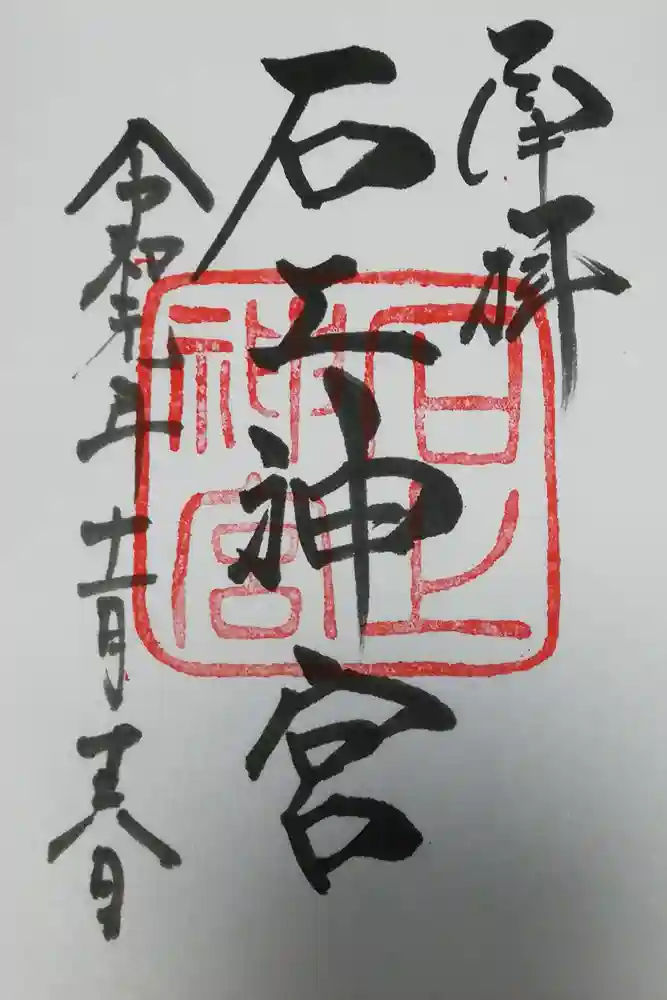 奉拝
石上神宮
令和元年十一月十六日
石上神宮